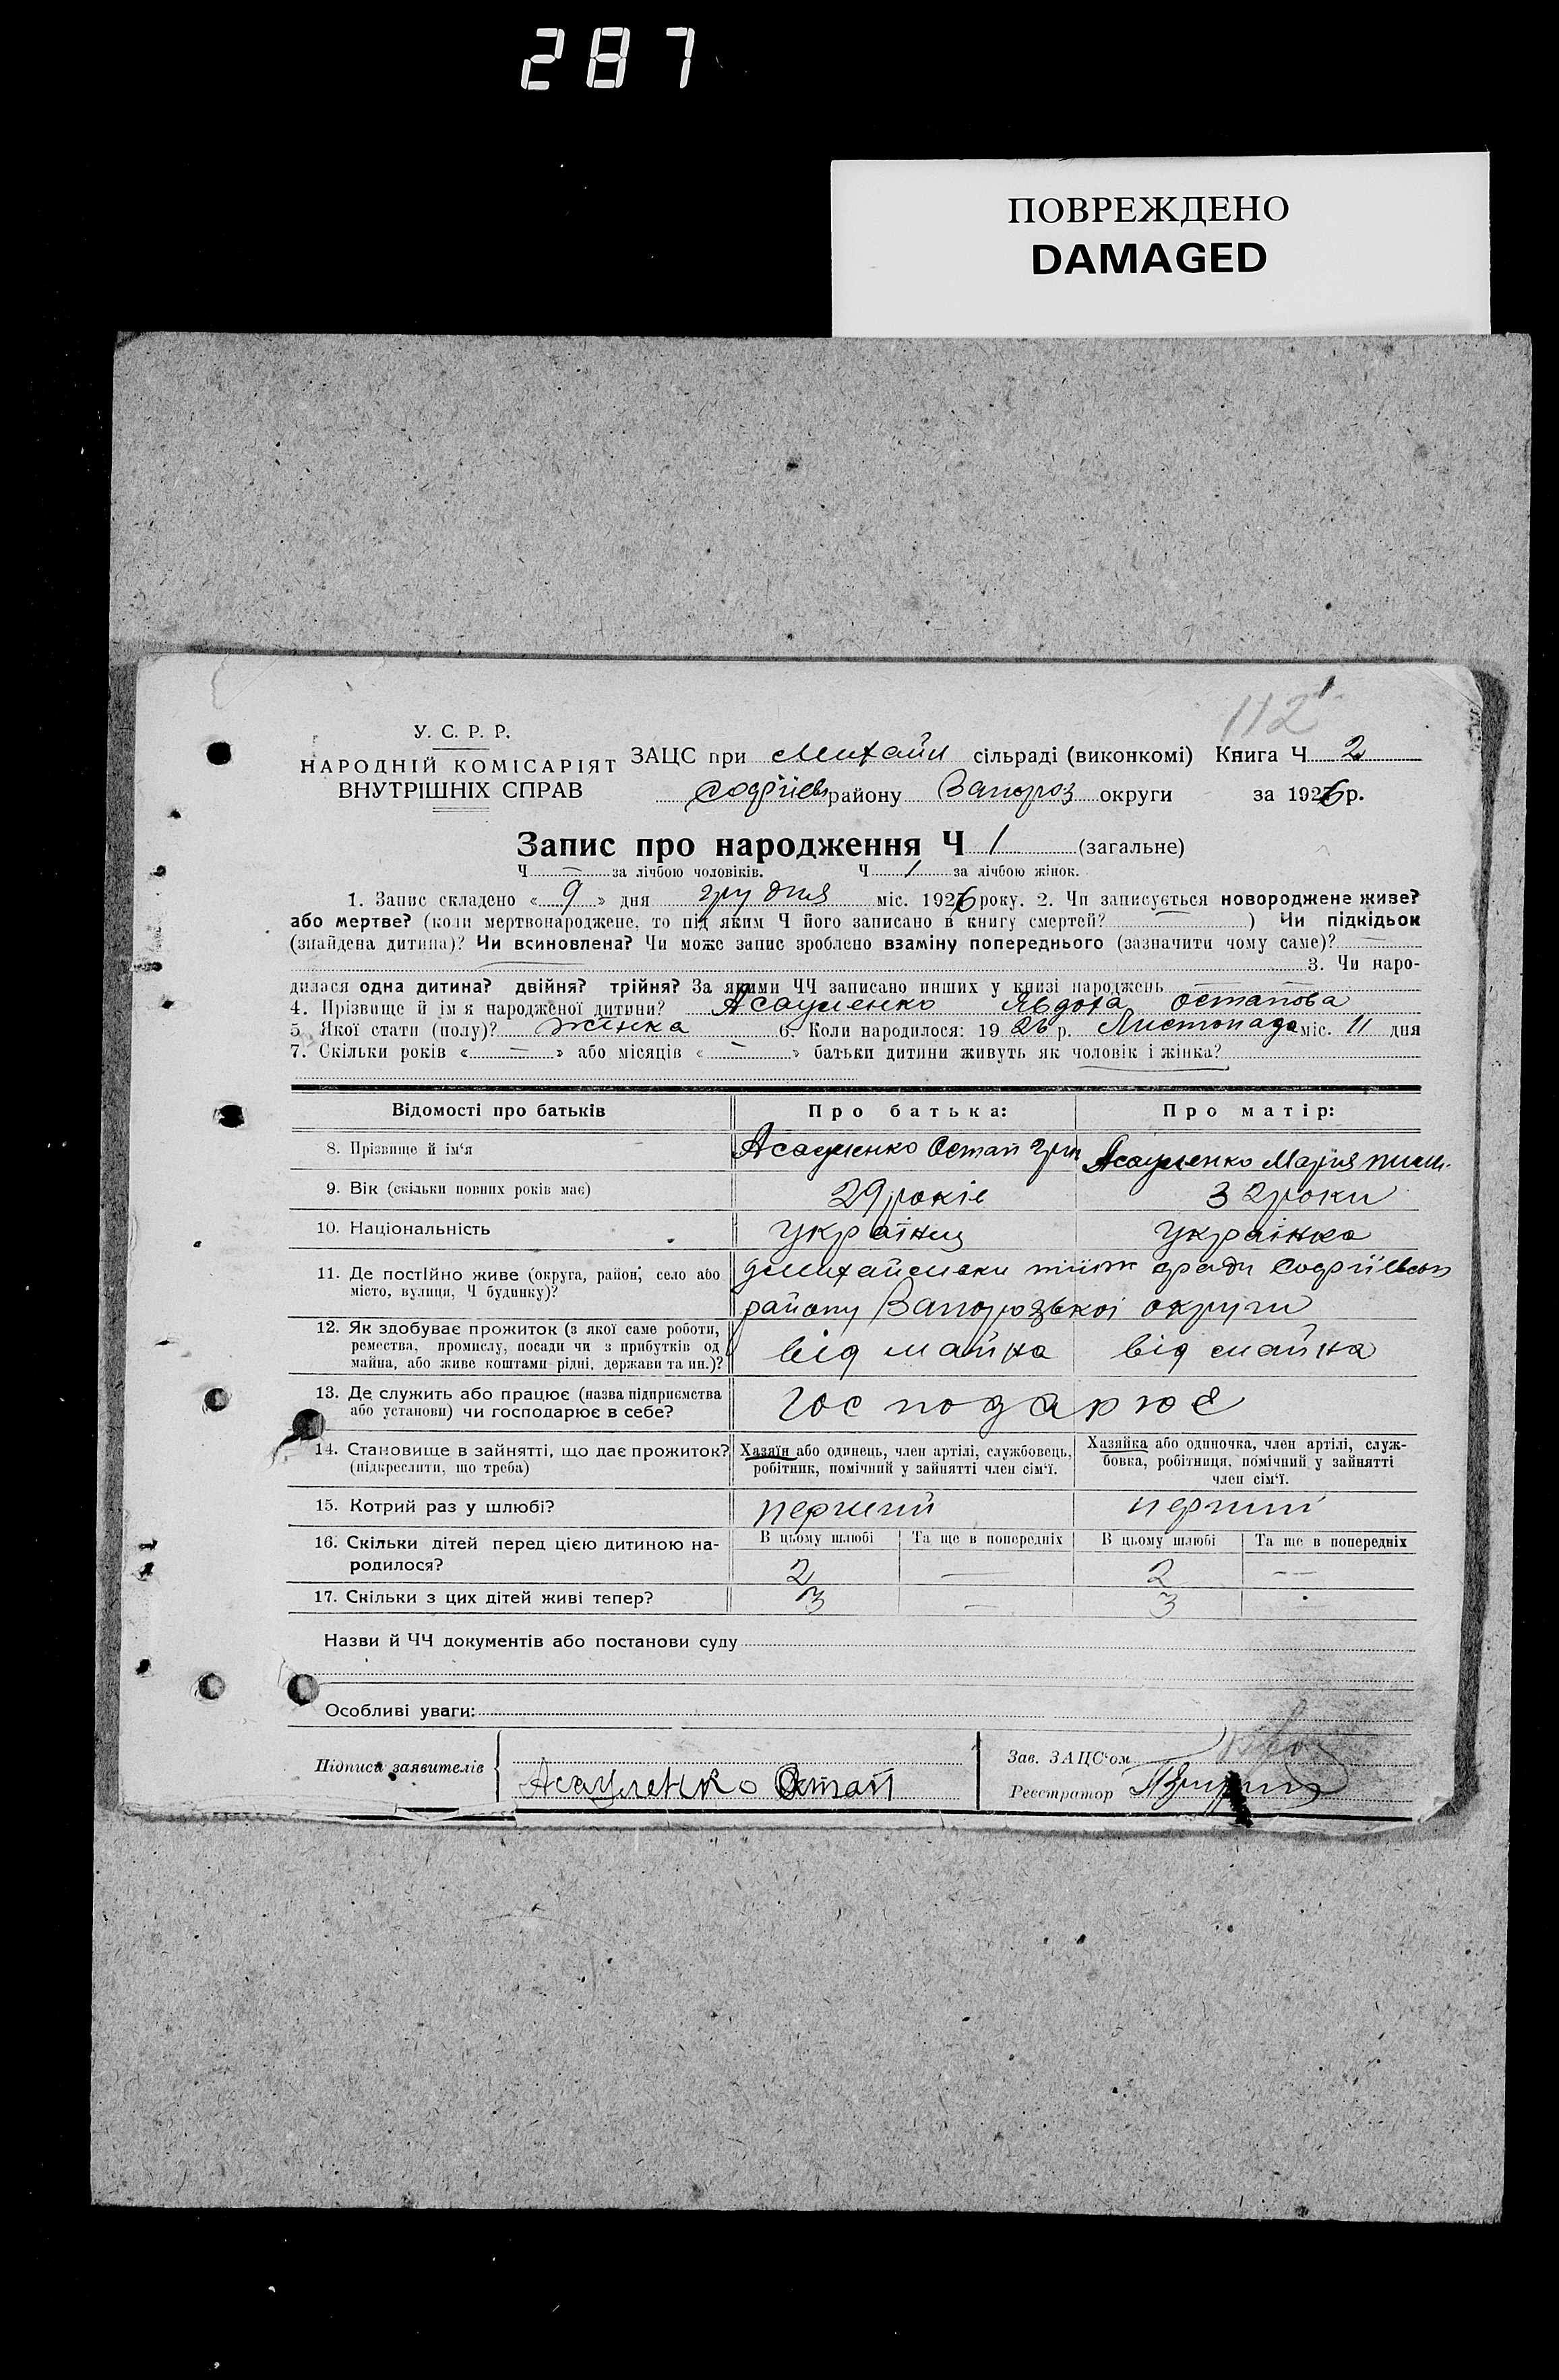 287
ПОВРЕЖДЕНО
DAMAGED
112
У. С. Р. Р.
НАРОДНІЙ КОМІСАРІЯТ
ВНУТРІШНІХ СПРАВ
ЗАЦС при Михайл сільраді (виконкомі) Книга Ч 2
Софіїев району Запороз округи за 1926 р.
Запис про народження Ч 1 (загальне)
Ч — за лічбою чоловіків. Ч 1 за лічбою жінок.
1. Запис складено « 9 » дня грудня міс. 1926 року. 2. Чи записується новороджене живе?
або мертве? (коли мертвонароджене, то під яким Ч його записано в книгу смертей? — ) Чи підкідьок
(знайдена дитина)? Чи всиновлена? Чи може запис зроблено взаміну попереднього (зазначити чому саме)? —
3. Чи наро-
дилася одна дитина? двійня? трійня? За якими ЧЧ записано инших у книзі народжень
4. Прізвище й ім'я народженої дитини? Асауленко Явдоха Остапова
5. Якої стати (полу)? жінка 6. Коли народилося: 1926 р. Листопада міс. 11 дня
7. Скільки років « — » або місяців « — » батьки дитини живуть як чоловік і жінка?
Відомості про батьків Про батька: Про матір:
8. Прізвище й ім'я Асауленко Остап Асауленко Марія
9. Вік (скільки повних років має) 29 років 32 роки
10. Національність українц українка
11. Де постійно живе (округа, район, село або
місто, вулиця, Ч будинку)?
району Запорозької округи
12. Як здобуває прожиток (з якої саме роботи,
ремества, промислу, посади чи з прибутків од
майна, або живе коштами рідні, держави та ин.)?
від майна від майна
13. Де служить або працює (назва підприємства
або установи) чи господарює в себе?
господарює
14. Становище в зайнятті, що дає прожиток?
(підкреслити, що треба)
Хазяїн або одинець, член артілі, службовець,
робітник, помічний у зайнятті член сім'ї.
Хазяйка або одиночка, член артілі, служ-
бовка, робітниця, помічний у зайнятті
член сім'ї.
15. Котрий раз у шлюбі? перший перший
16. Скільки дітей перед цією дитиною на-
родилося?
В цьому шлюбі Та ще в попередніх В цьому шлюбі Та ще в попередніх
2 — 2 —
17. Скільки з цих дітей живі тепер? 3 — 3
Назви й ЧЧ документів або постанови суду
Особливі уваги:
Підписи заявителів
Асауленко Остап
Зав. ЗАЦС'ом
Реєстратор